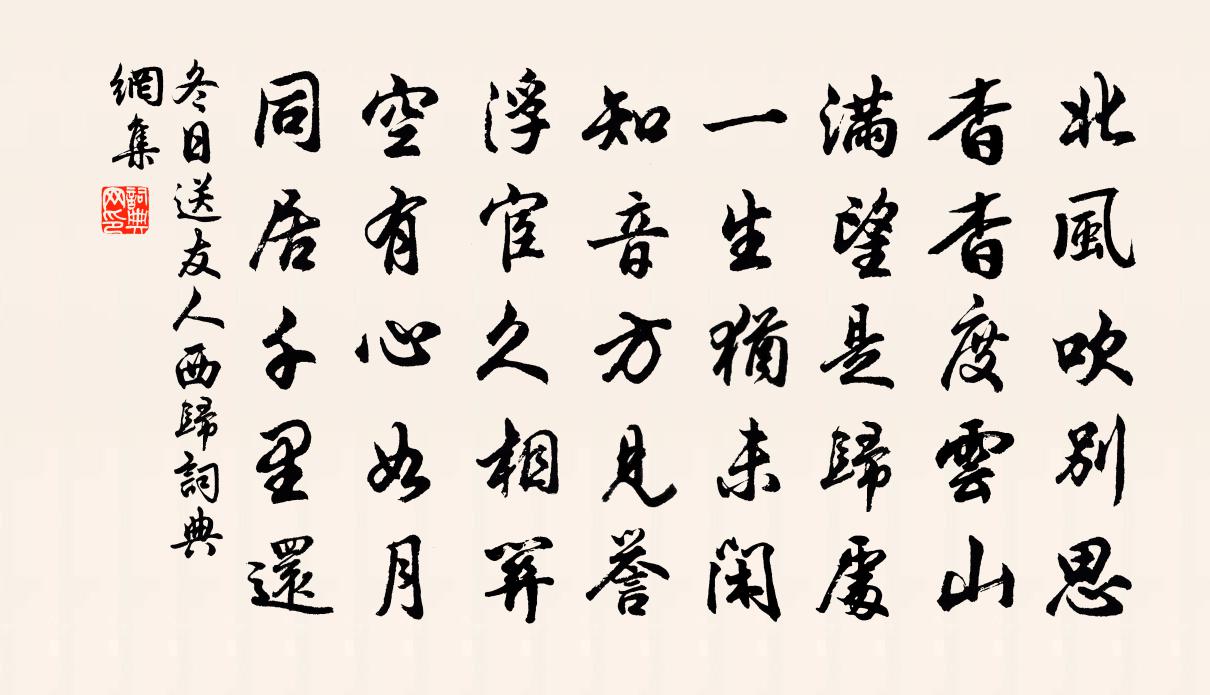 北風吹別思
杳杳度雲山
滿望是歸處
一生猶未閑
知音方見譽
浮宦久相關
空有心如月
同居千里還
冬日送友人西歸詞典
網集
詞典
网印